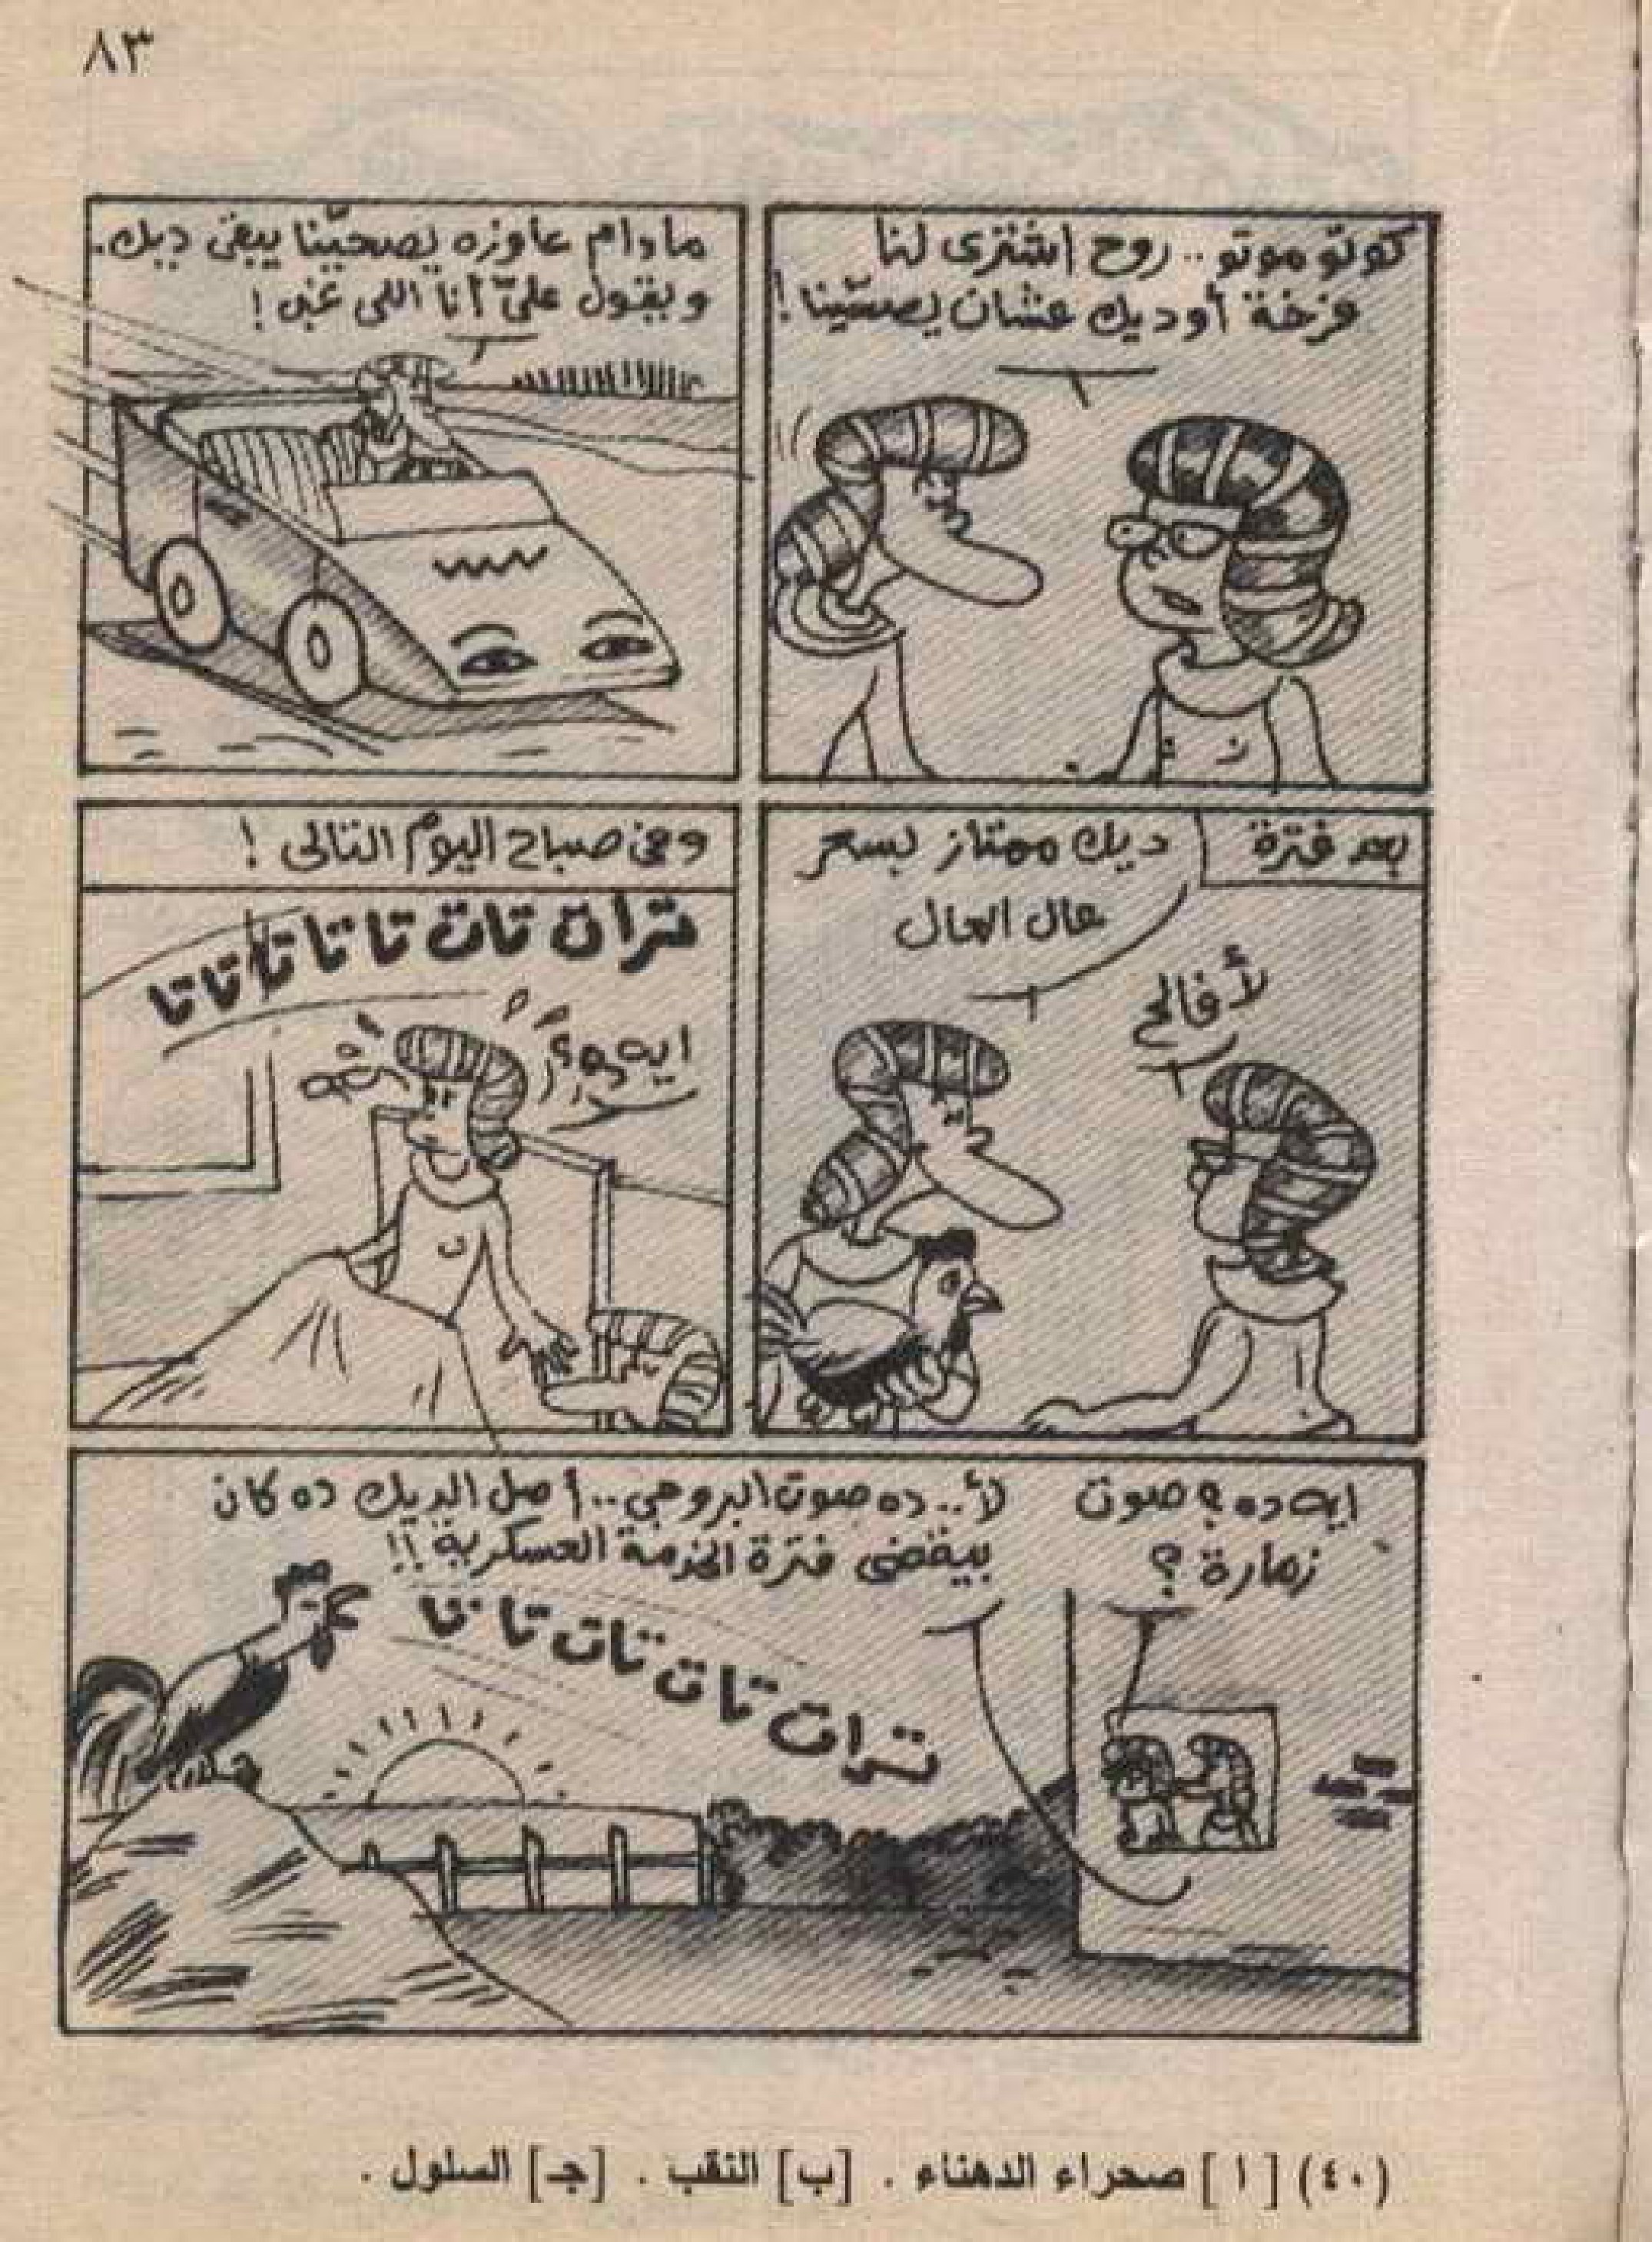 ٨٣
كوتو موتو .. روح اشترى لنا
فرخة أو ديك عشان يصحّينا !
مادام عاوزه يصحيّنا يبقى ديك.
وبيقول علىّ أنا اللى غبى !
بعد فترة
ديك ممتاز بسعر
عال العال
لأ فالح
وفى صباح اليوم التالى !
تران تات تا تا تا تا تا
ايه ده؟
ايه ده ؟ صوت
زمارة ؟
لأ .. ده صوت البروجى .. أصل الديك ده كان
بيقضى فترة الخدمة العسكرية !!
تران تات تات تا تا
(٤٠) [ ا ] صحراء الدهناء . [ب] النقب . [جـ] السلول .